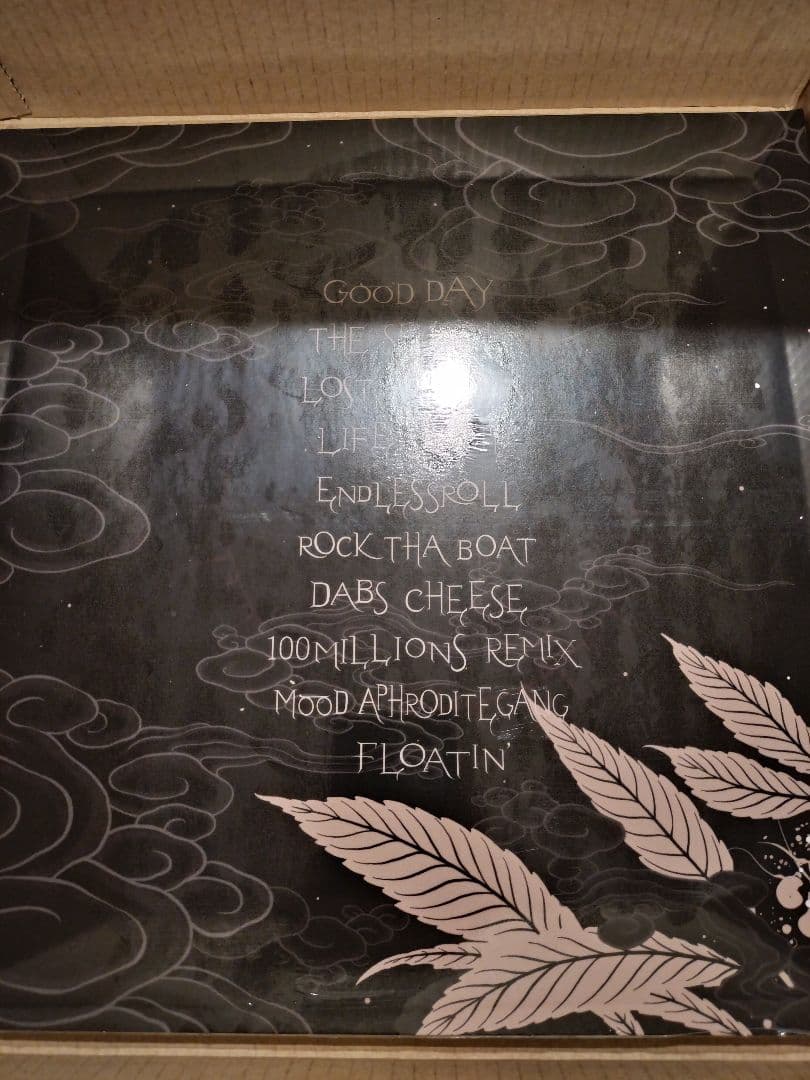 GOOD DAY
THE
LOST
LIFE
ENDLESSROLL
ROCK THA BOAT
DABS CHEESE
100MILLIONS REMIX
MOOD APHRODITEGANG
FLOATIN'